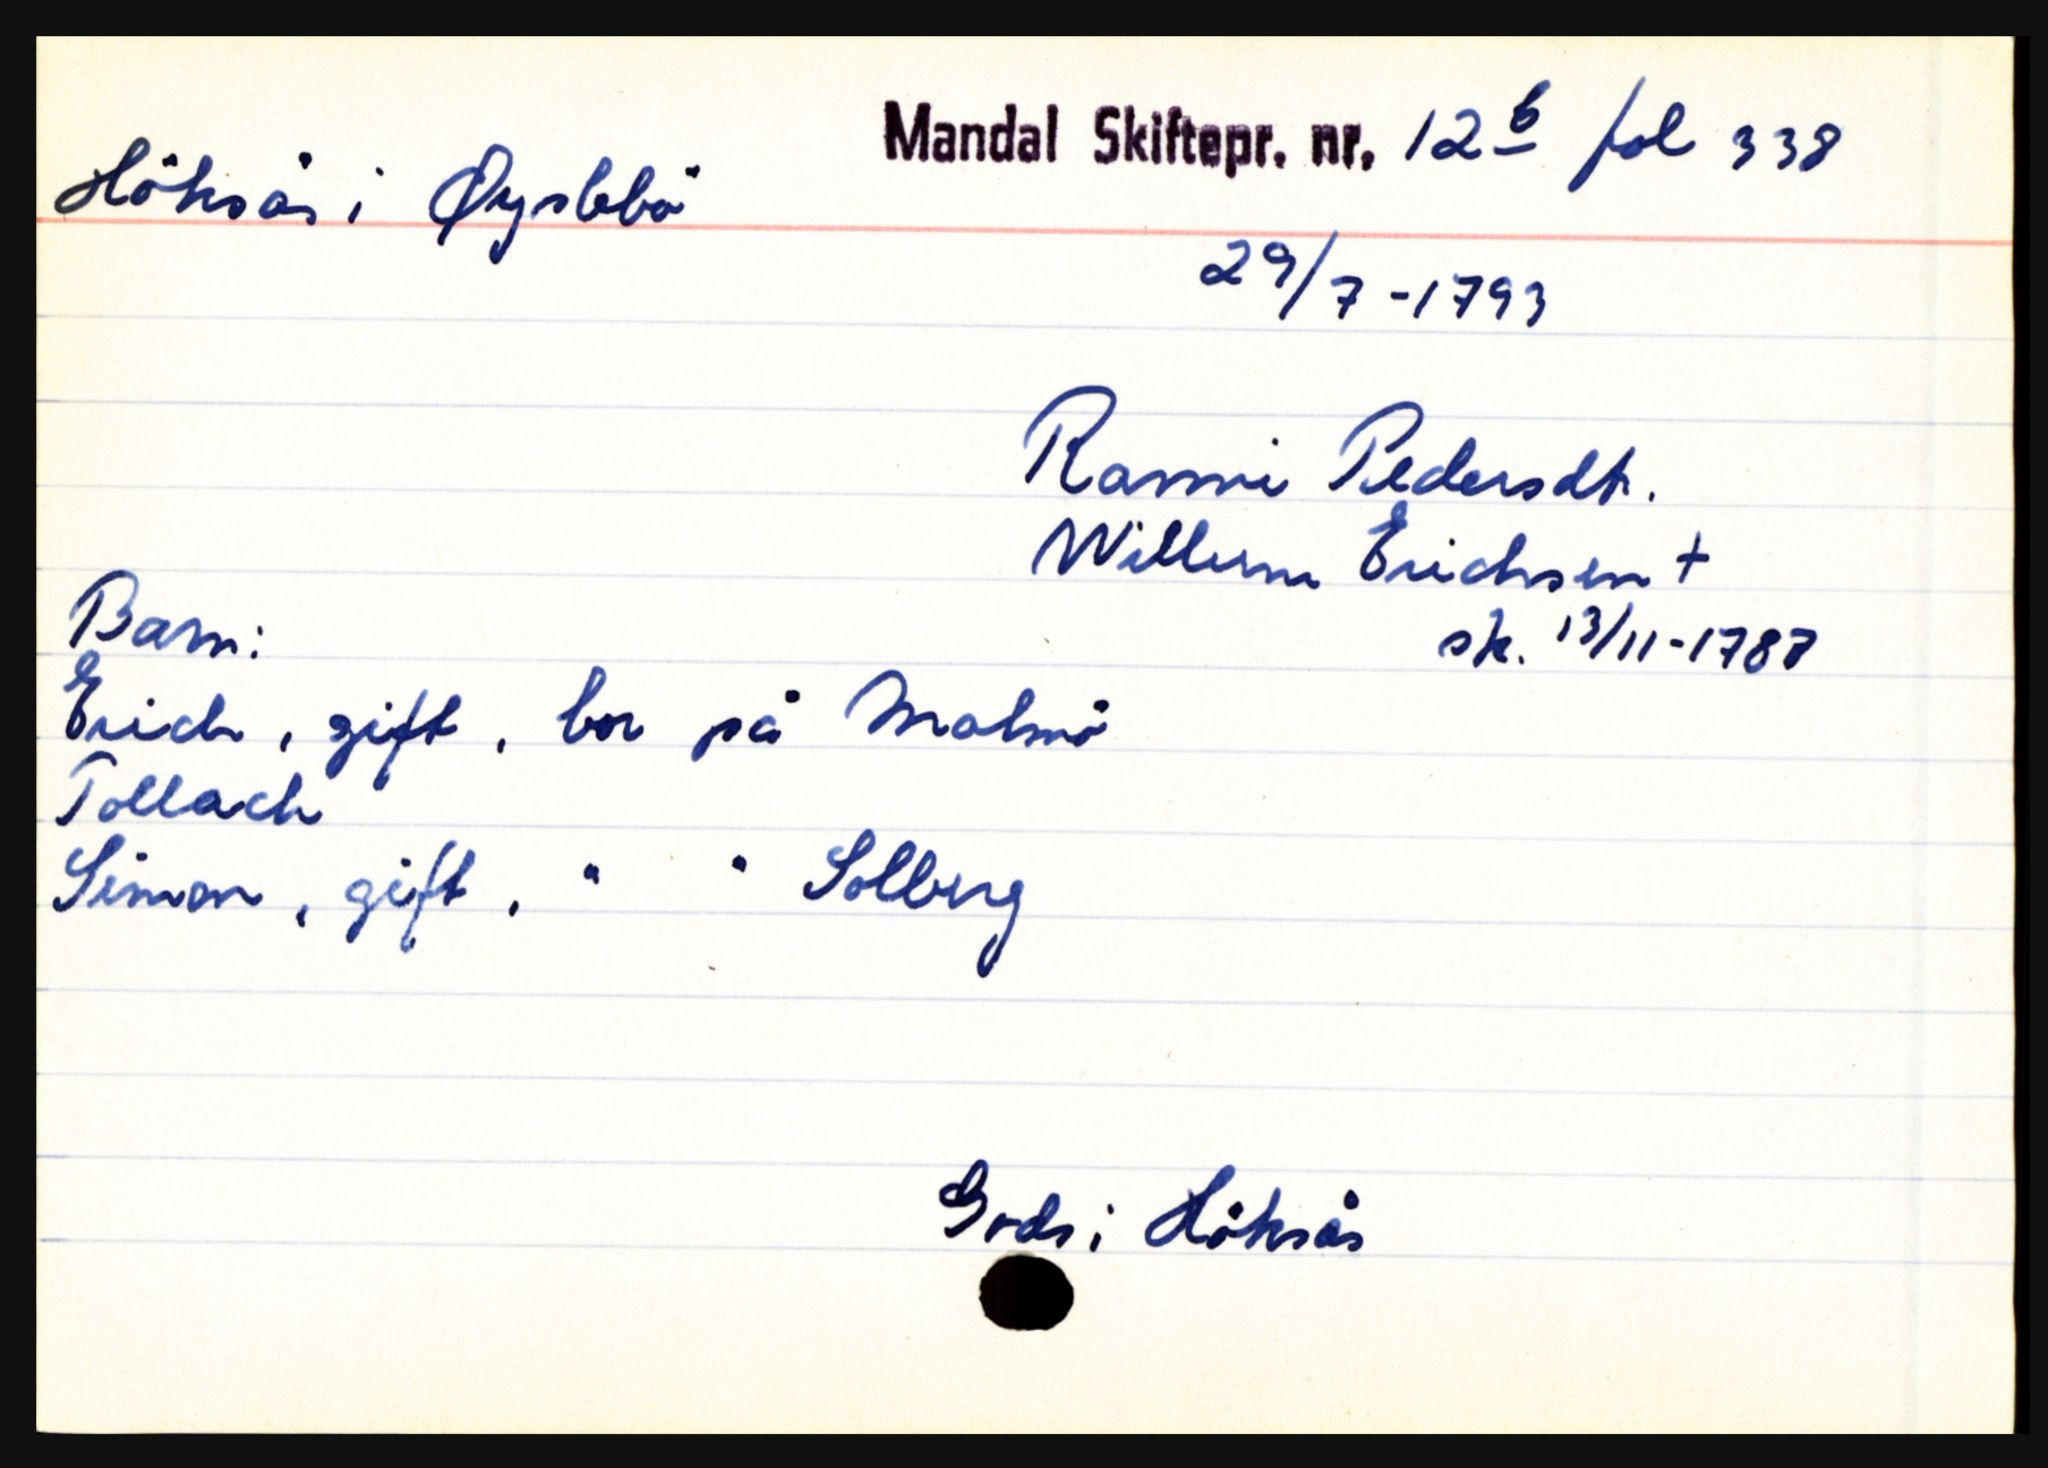 Mandal Skiftepr. nr. 12 b fol 338
Höksås i Øyslebö
29/7-1793
Ranni Pedersdt.
Willum Erichsen +
sk. 13/11-1787
Barn:
Erich, gift, bor på Malmö
Tollach
Simon, gift, " " Solberg
Gods i Höksås